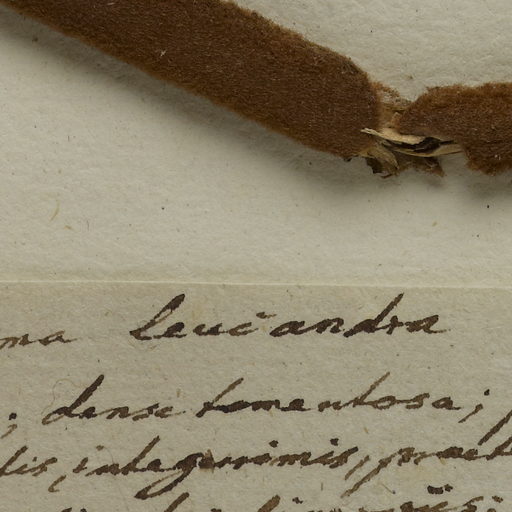 ma Leucandra
; dense tomentosa;
tis, integerrimis, praet